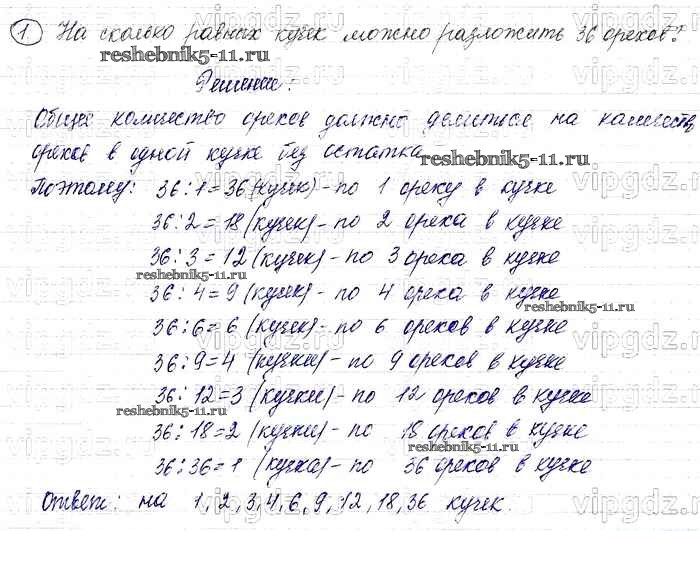 1. На сколько равных кучек можно разложить 36 орехов?
reshebnik5-11.ru
Решение:
Общее количество орехов должно делиться на количеств
орехов в одной кучке без остатка
reshebnik5-11.ru
Поэтому: 36:1=36 (кучек) - по 1 ореху в кучке
36:2=18 (кучек) - по 2 ореха в кучке
36:3=12 (кучек) - по 3 ореха в кучке
reshebnik5-11.ru
36:4=9 (кучек) - по 4 ореха в кучке
reshebnik5-11.ru
36:6=6 (кучек) - по 6 орехов в кучке
36:9=4 (кучки) - по 9 орехов в кучке
36:12=3 (кучки) - по 12 орехов в кучке
reshebnik5-11.ru
36:18=2 (кучки) - по 18 орехов в кучке
36:36=1 (кучка) - по 36 орехов в кучке
Ответ: на 1, 2, 3, 4, 6, 9, 12, 18, 36 кучек.
vipgdz.ru